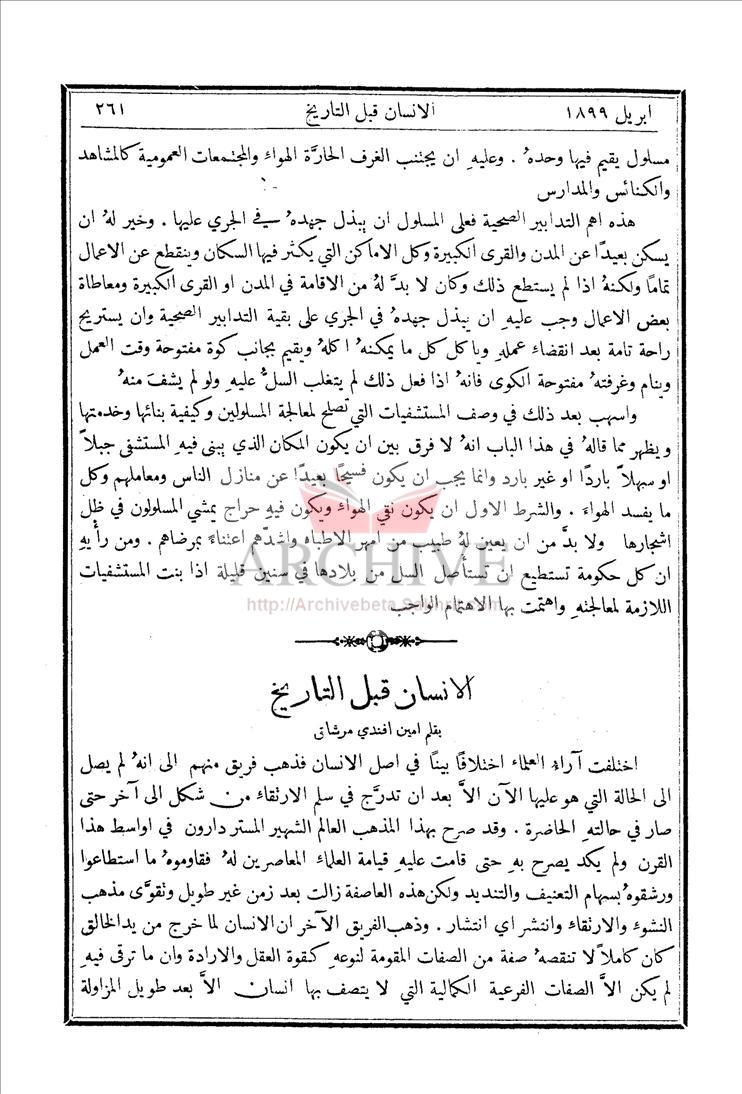 ابريل ١٨٩٩ الانسان قبل التاريخ ٢٦١
مسلول يقيم فيها وحدهُ . وعليهِ ان يجتنب الغرف الحارَّة الهواءِ والمجتمعات العمومية كالمشاهد
والكنائس والمدارس
هذه اهم التدابير الصحية فعلى المسلول ان يبذل جهدهُ في الجري عليها . وخير لهُ ان
يسكن بعيدًا عن المدن والقرى الكبيرة وكل الاماكن التي يكثر فيها السكان وينقطع عن الاعمال
تمامًا ولكنهُ اذا لم يستطع ذلك وكان لا بدَّ لهُ من الاقامة في المدن او القرى الكبيرة ومعاطاة
بعض الاعمال وجب عليهِ ان يبذل جهدهُ في الجري على بقية التدابير الصحية وان يستريح
راحة تامة بعد انقضاءِ عملهِ وياكل كل ما يمكنهُ اكلهُ ويقيم بجانب كوة مفتوحة وقت العمل
وينام وغرفتهُ مفتوحة الكوى فانهُ اذا فعل ذلك لم يتغلب السلُّ عليهِ ولو لم يشفَ منهُ
واسهب بعد ذلك في وصف المستشفيات التي تصلح لمعالجة المسلولين وكيفية بنائها وخدمتها
ويظهر مما قالهُ في هذا الباب انهُ لا فرق بين ان يكون المكان الذي يبنى فيهِ المستشفى جبلاً
او سهلاً باردًا او غير بارد وانما يجب ان يكون فسيحًا بعيدًا عن منازل الناس ومعاملهم وكل
ما يفسد الهواءَ . والشرط الاول ان يكون نقي الهواءِ ويكون فيهِ حراج يمشي المسلولون في ظل
اشجارها ولا بدَّ من ان يعين لهُ طبيب من امهر الاطباء واشدّهم اعتناءً بمرضاهم . ومن رأيهِ
ان كل حكومة تستطيع ان تستأصل السل من بلادها في سنين قليلة اذا بنت المستشفيات
اللازمة لمعالجتهِ واهتمت بها الاهتمام الواجب
ARCHIVE
http://Archivebeta.Sakhrit.com
الانسان قبل التاريخ
بقلم امين افندي مرشاق
اختلفت آراءُ العلماء اختلافًا بينًا في اصل الانسان فذهب فريق منهم الى انهُ لم يصل
الى الحالة التي هو عليها الآن الاَّ بعد ان تدرَّج في سلم الارتقاءِ من شكل الى آخر حتى
صار في حالتهِ الحاضرة . وقد صرح بهذا المذهب العالم الشهير المستر دارون في اواسط هذا
القرن ولم يكد يصرح بهِ حتى قامت عليهِ قيامة العلماءِ المعاصرين لهُ فقاوموهُ ما استطاعوا
ورشقوهُ بسهام التعنيف والتنديد ولكن هذه العاصفة زالت بعد زمن غير طويل وتقوَّى مذهب
النشوءِ والارتقاءِ وانتشر اي انتشار . وذهب الفريق الآخر ان الانسان لما خرج من يد الخالق
كان كاملاً لا تنقصهُ صفة من الصفات المقومة لنوعهِ كقوة العقل والارادة وان ما ترقى فيهِ
لم يكن الاَّ الصفات الفرعية الكمالية التي لا يتصف بها انسان الاَّ بعد طويل المزاولة